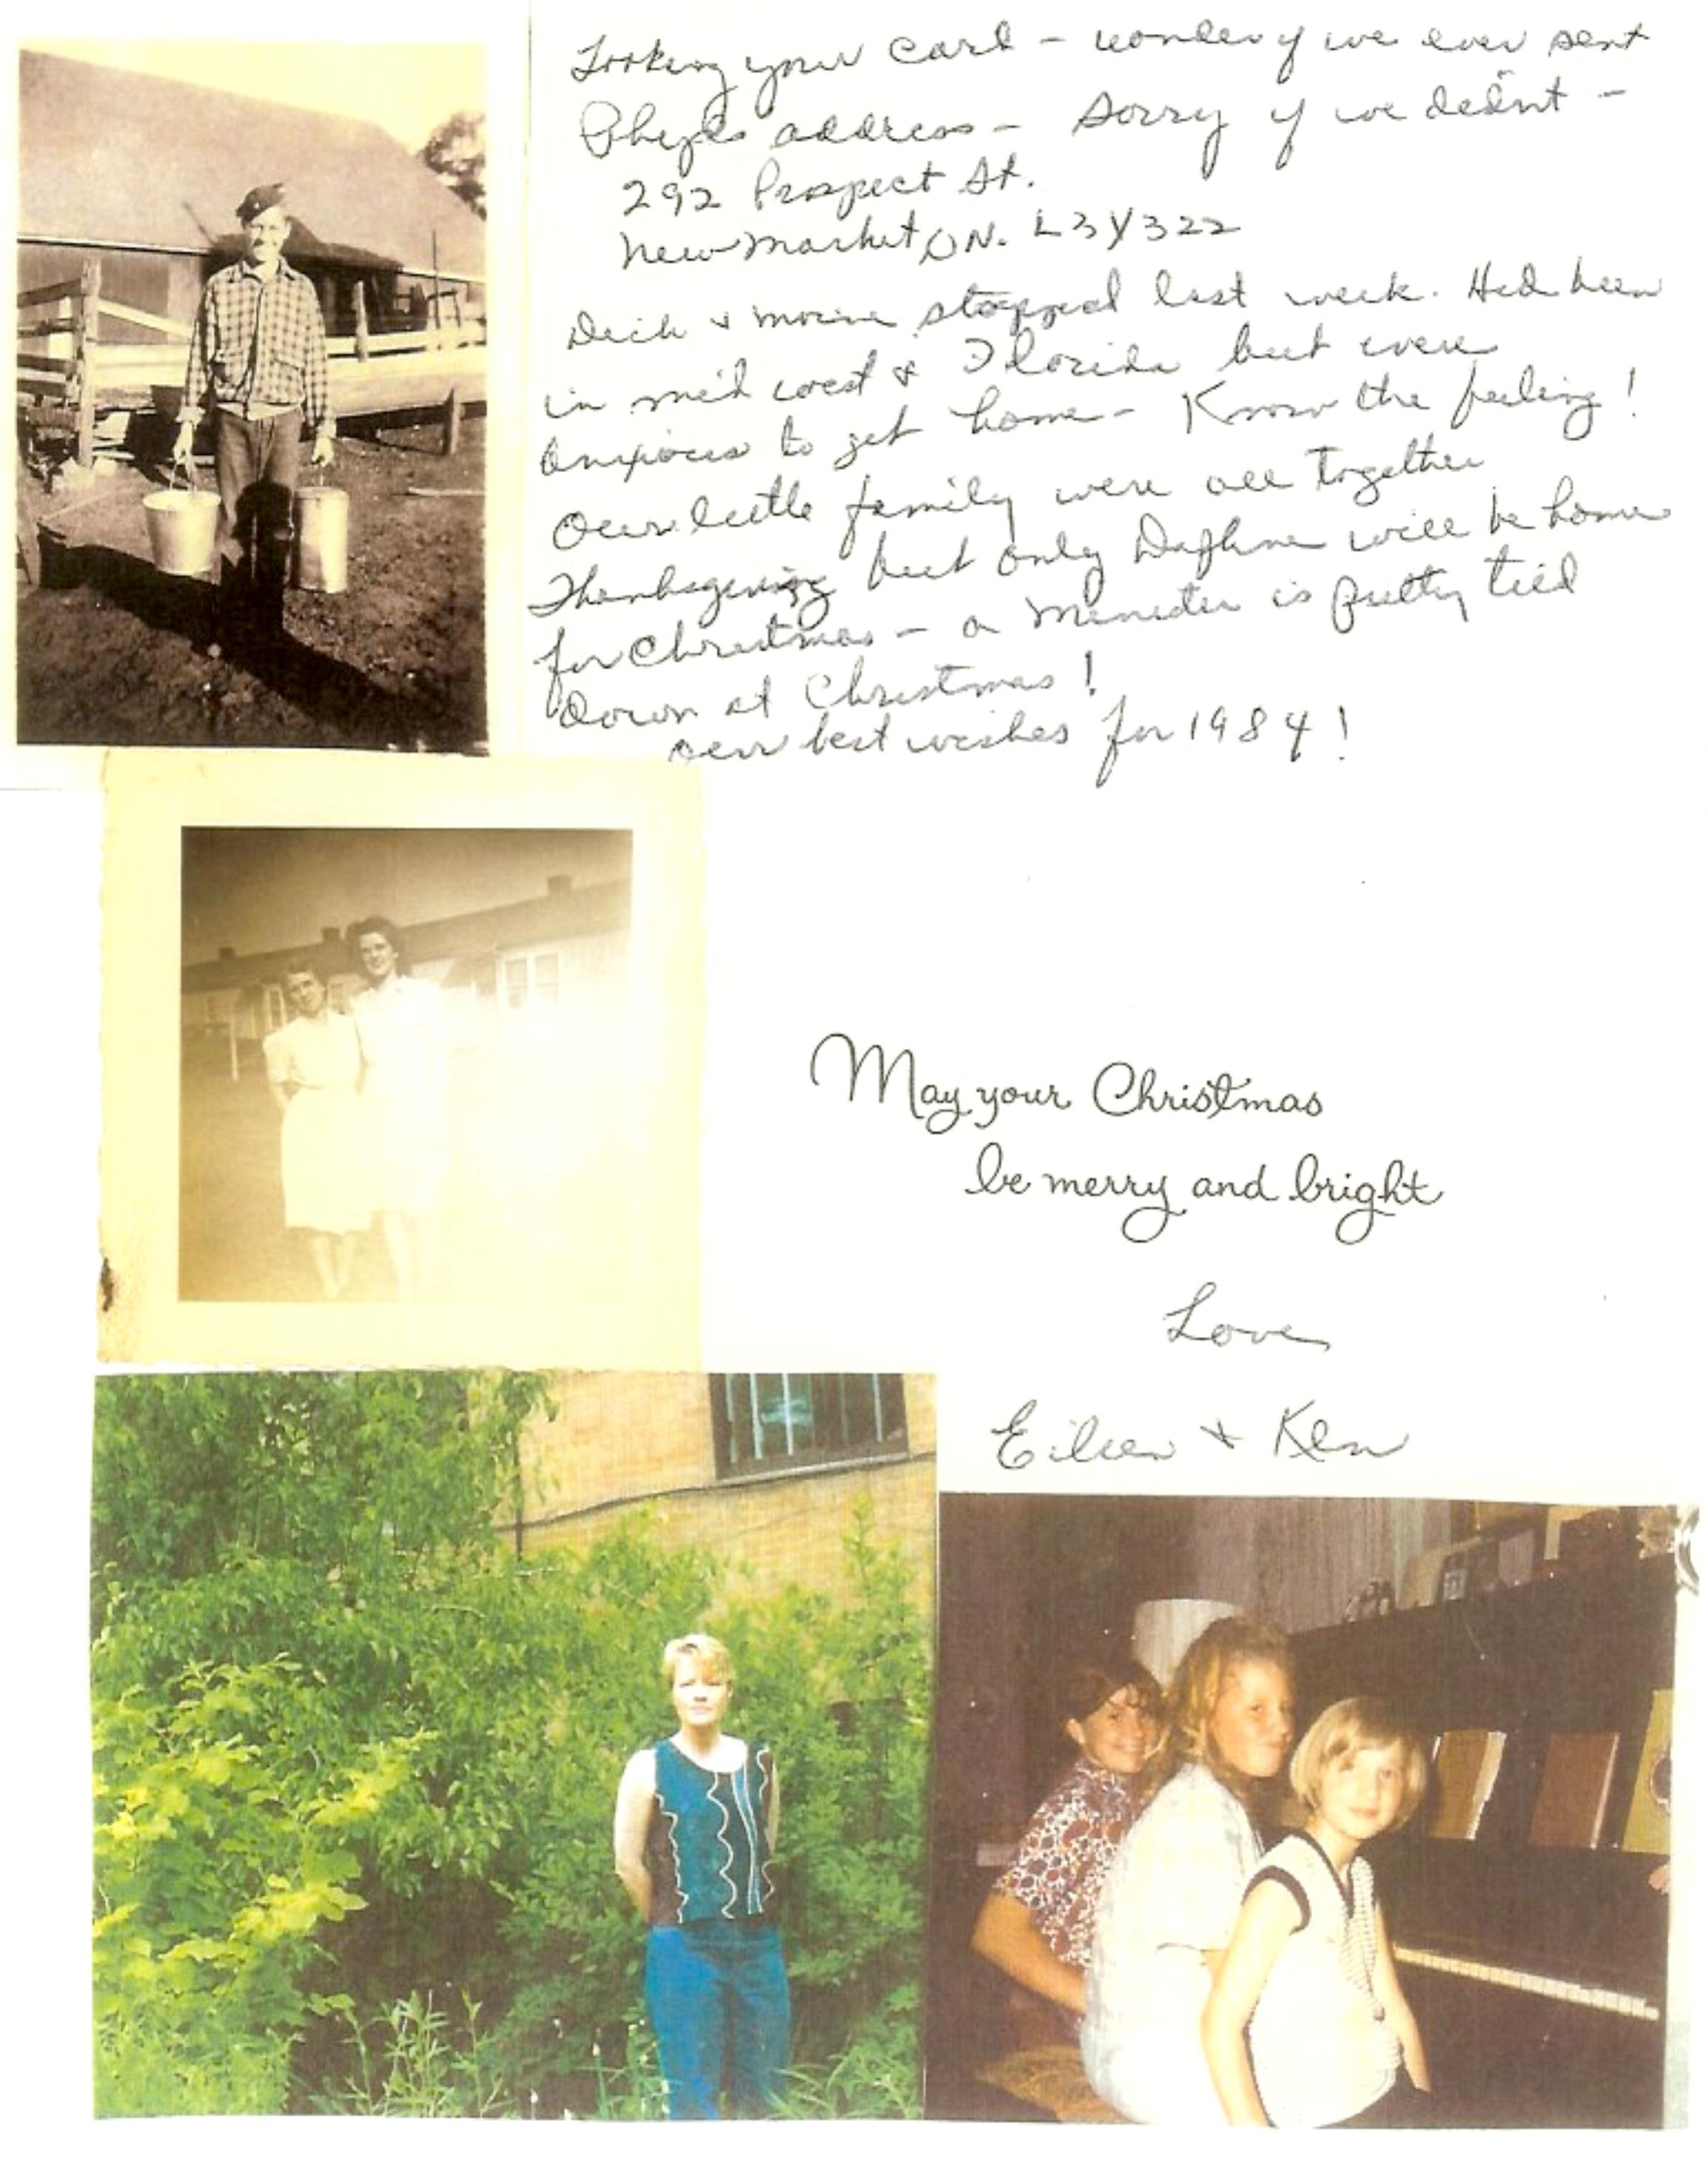 Looking your card - wonder if we ever sent
Phyl's address - Sorry if we didn't -
292 Prospect St.
New Market, ON. L3Y 3Z2
Dick & stopped last week. Had been
in mid west & Florida but were
anxious to get home - Know the feeling!
Our little family were all together
Thanksgiving but only Daphne will be home
for Christmas - a Minister is pretty tied
down at Christmas!
Our best wishes for 1984!
May your Christmas
be merry and bright
Love
Eileen & Ken